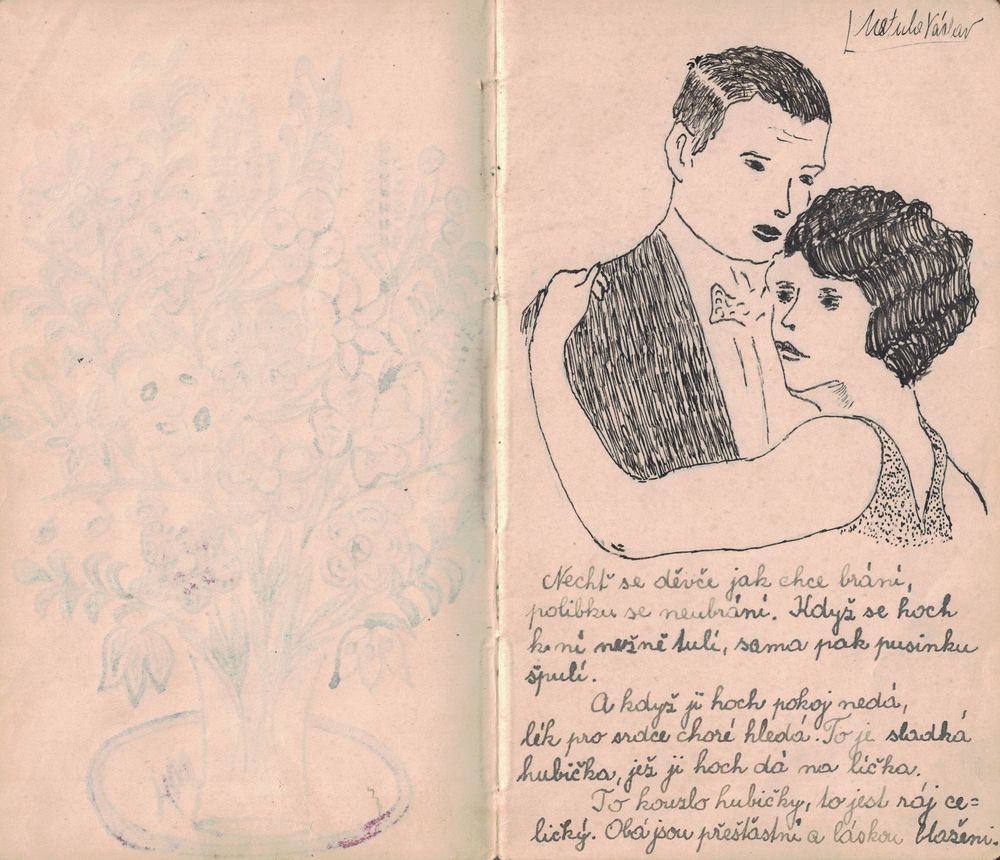 Matula Václav
Nechť se děvče jak chce brání,
polibku se neubrání. Když se hoch
k ní něžně tulí, sama pak pusinku
špulí.
A když ji hoch pokoj nedá,
lék pro srdce choré hledá. To je sladká
hubička, jež ji hoch dá na líčka.
To kouzlo hubičky, to jest ráj ce=
ličký. Obá jsou přešťastni a láskou blaženi.